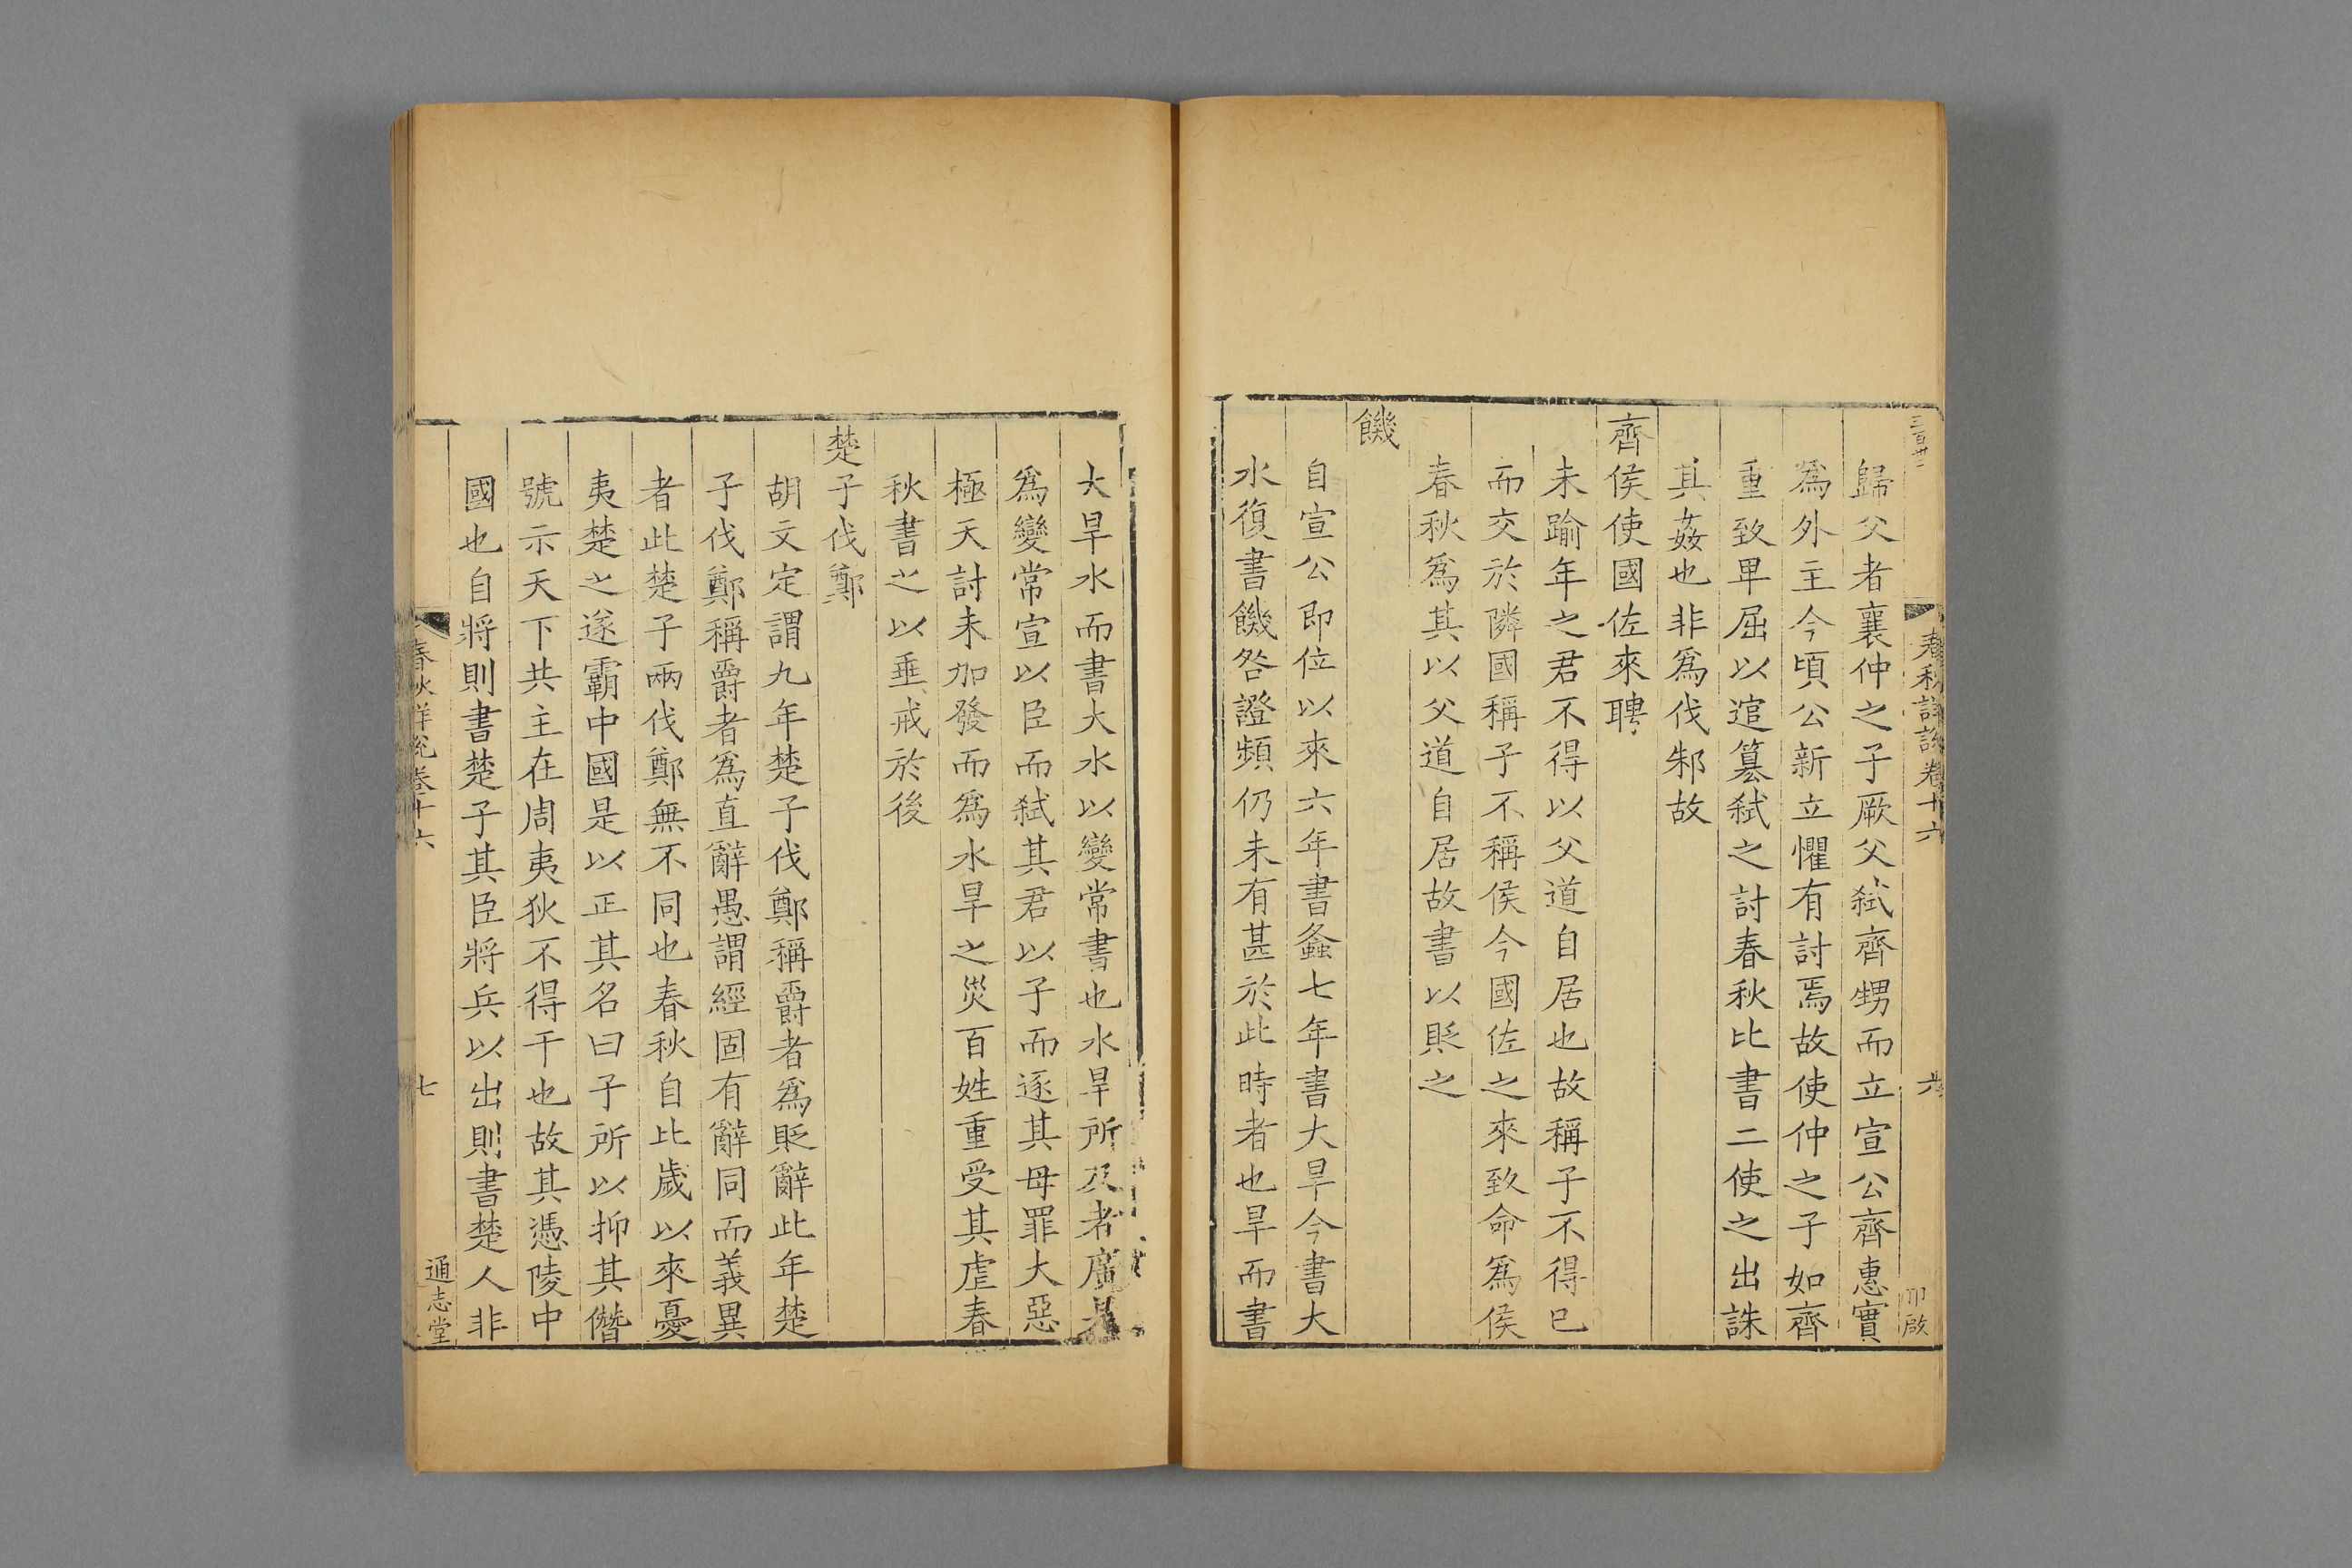 歸父者襄仲之子厥父弑齊甥而立宣公齊惠實
爲外主今頃公新立懼有討焉故使仲之子如齊
重致卑屈以逭篡弑之討春秋比書二使之出誅
其姦也非爲伐邾故
齊侯使國佐來聘
未踰年之君不得以父道自居也故稱子不得已
而交於隣國稱子不稱侯今國佐之來致命爲侯
春秋爲其以父道自居故書以貶之
饑
自宣公即位以來六年書螽七年書大旱今書大
水復書饑咎證頻仍未有甚於此時者也旱而書
大旱水而書大水以變常書也水旱所及者廣是
爲變常宣以臣而弑其君以子而逐其母罪大惡
極天討未加發而爲水旱之災百姓重受其虐春
秋書之以垂戒於後
楚子伐鄭
胡文定謂九年楚子伐鄭稱爵者爲貶辭此年楚
子伐鄭稱爵者爲直辭愚謂經固有辭同而義異
者此楚子兩伐鄭無不同也春秋自比歲以來憂
夷楚之遂霸中國是以正其名曰子所以抑其僭
號示天下共主在周夷狄不得干也故其憑陵中
國也自將則書楚子其臣將兵以出則書楚人非
春秋詳說卷十六
七
通志堂
春秋詳說卷十六
六